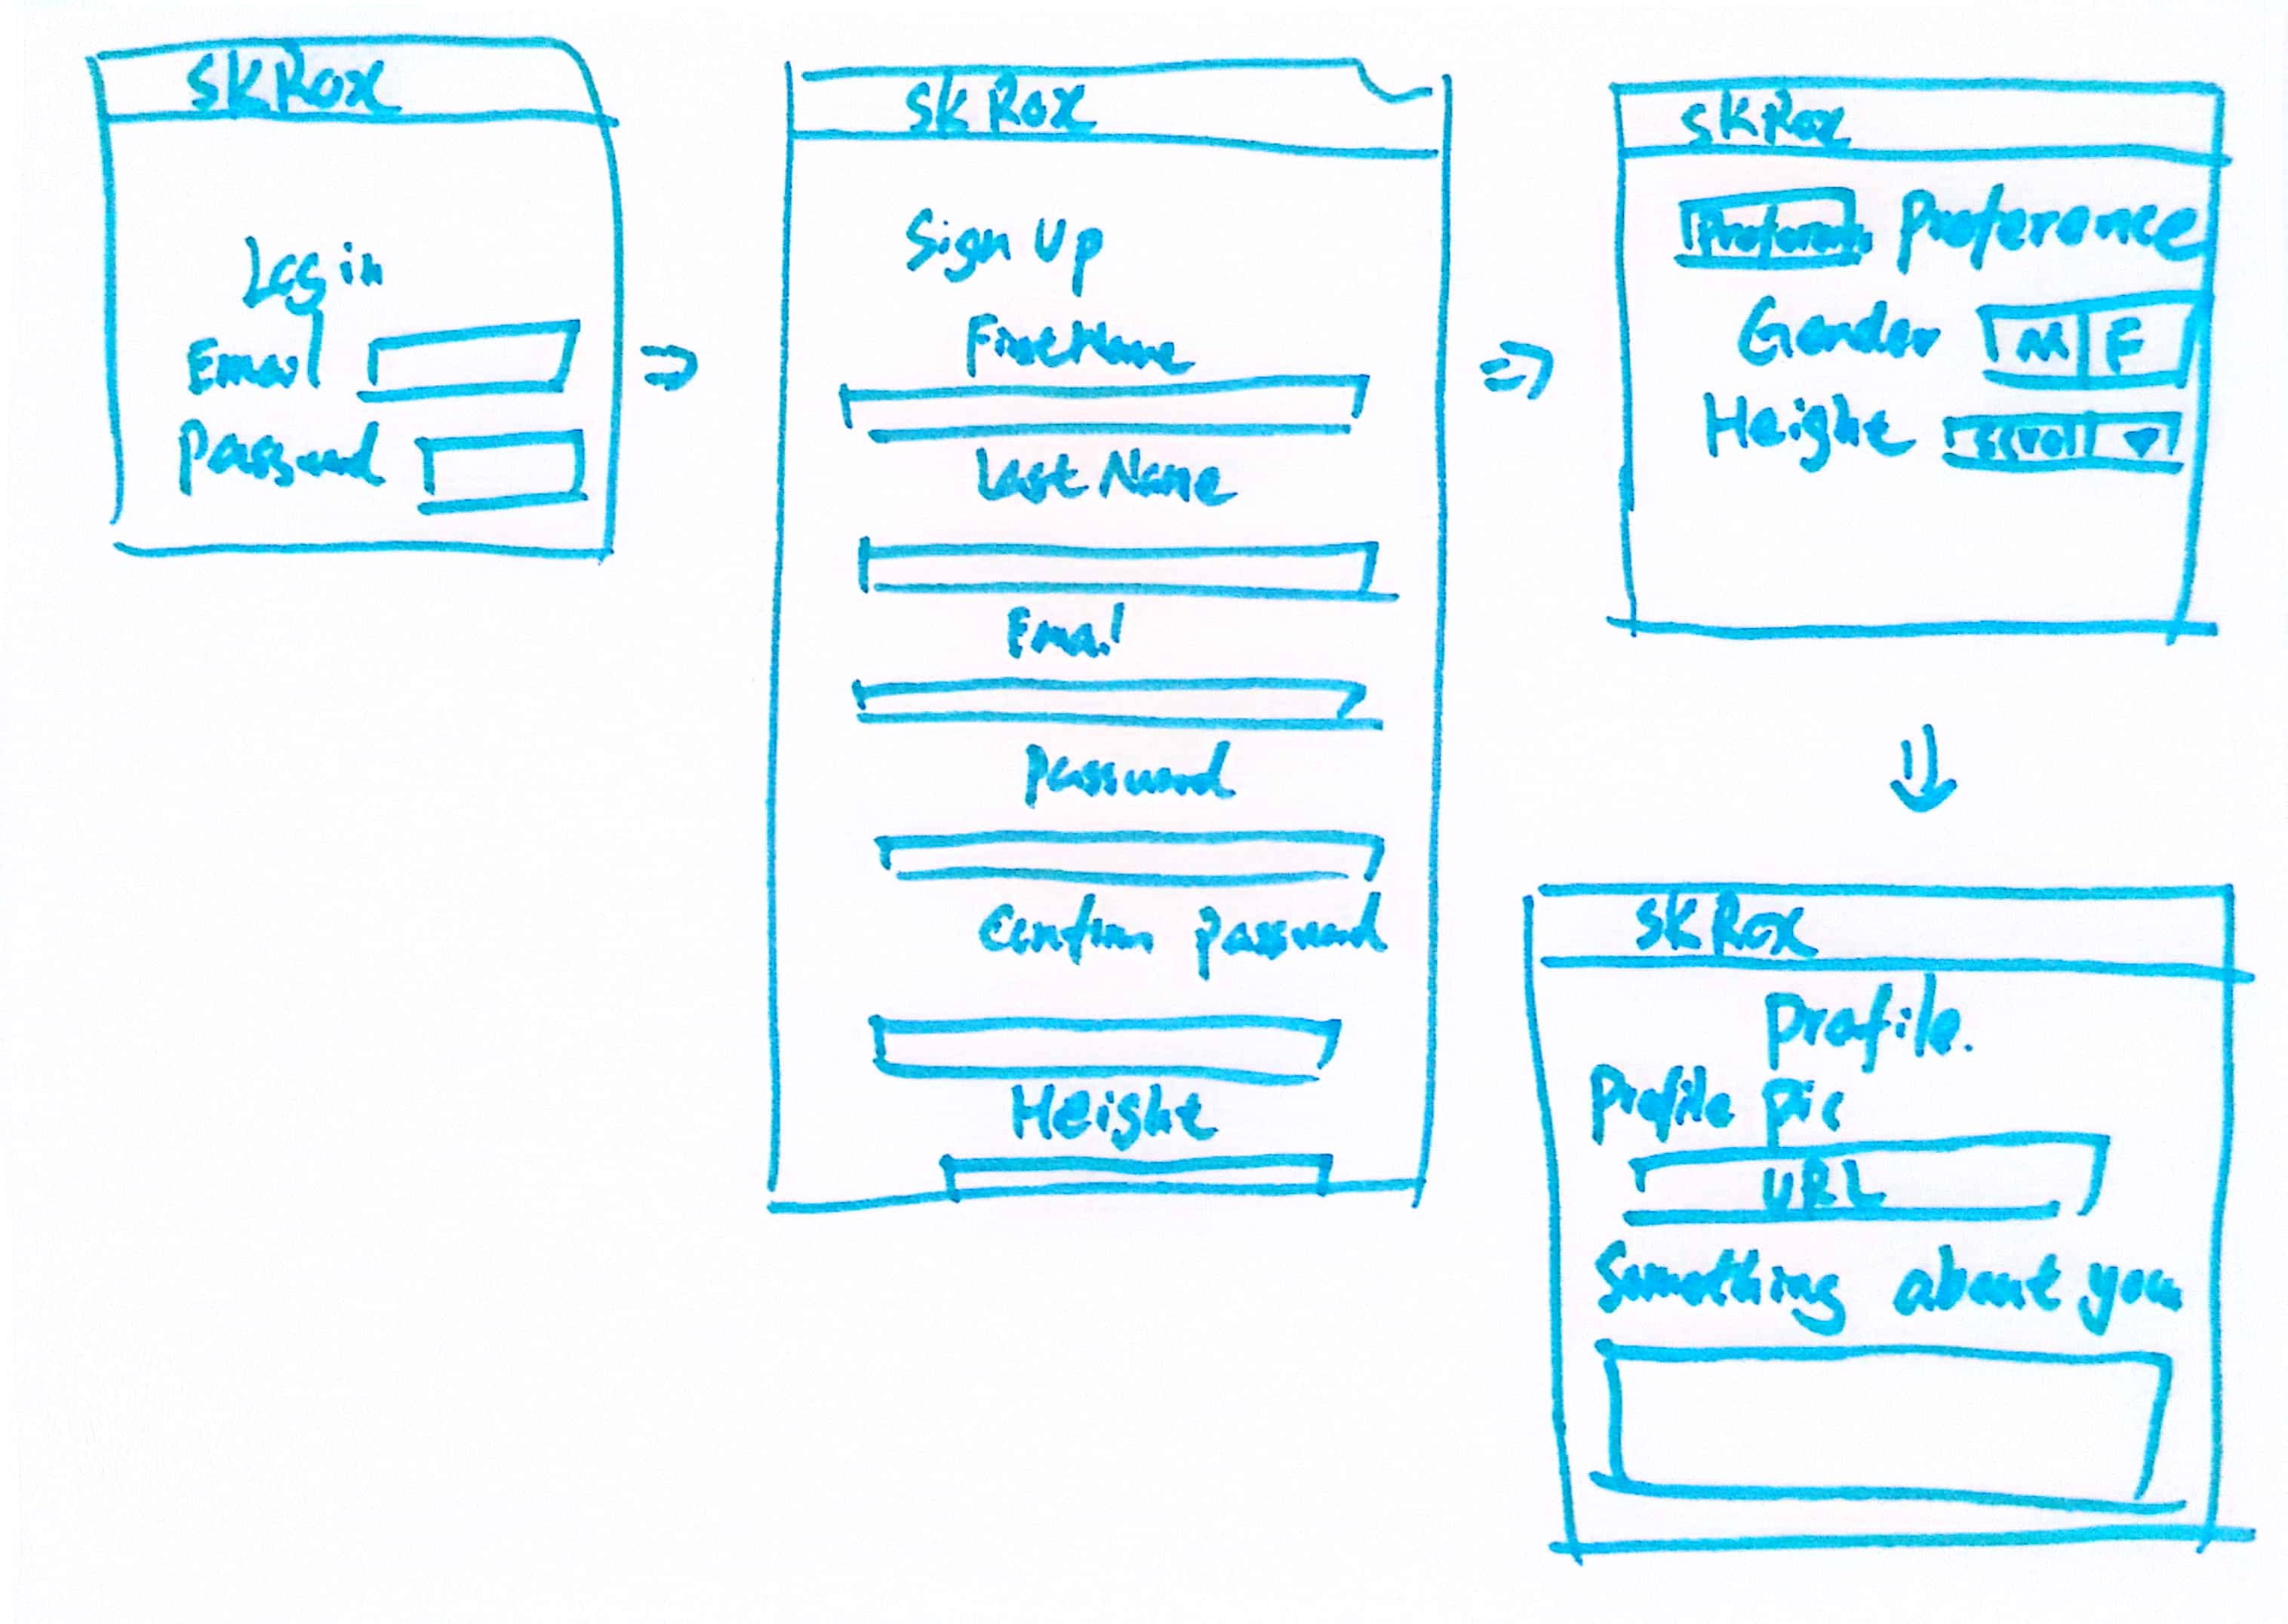 SKRox
Login
Email
Password
SKRox
Sign Up
First Name
Last Name
Email
Password
Confirm Password
Height
SKRox
Preference Preference
Gender M F
Height scroll
SKRox
Profile.
Profile pic
URL
Something about you